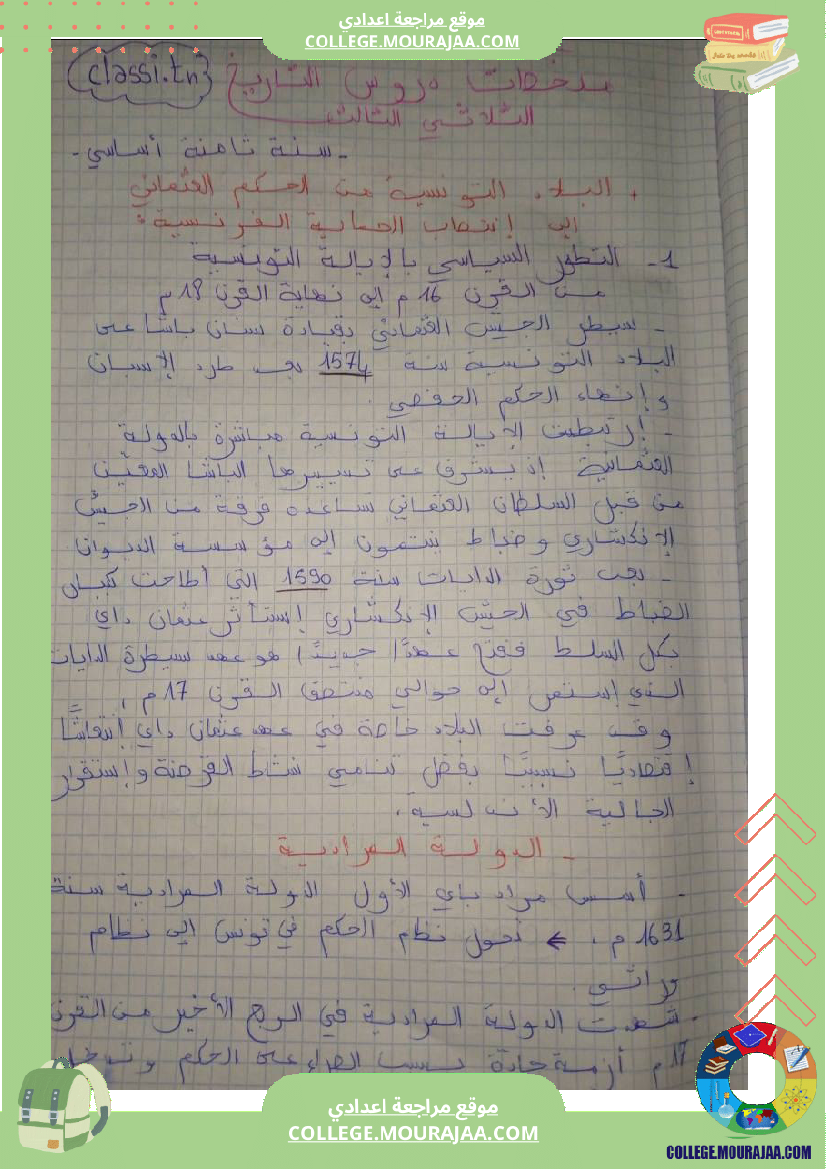 موقع مراجعة اعدادي
COLLEGE.MOURAJAA.COM
ملخصات دروس التاريخ classi.tn
الثلاثي الثالث
- سنة ثامنة أساسي -
البلاد التونسية من الحكم العثماني
إلى إنتصاب الحماية الفرنسية:
1- التطور السياسي بالإيالة التونسية
من القرن 16م إلى نهاية القرن 18م
- سيطر الجيش العثماني بقيادة سنان باشا على
البلاد التونسية سنة 1574 بعد طرد الإسبان
وإنهاء الحكم الحفصي.
- إرتبطت الإيالة التونسية مباشرة بالدولة
العثمانية إذ يشرف على تسييرها الباشا المعيّن
من قبل السلطان العثماني تساعده فرقة من الجيش
الإنكشاري وضباط ينتمون إلى مؤسسة الديوان
- بعد ثورة الدايات سنة 1590 التي أطاحت بكبار
الضباط في الجيش الإنكشاري إستأثر عثمان داي
بكل السلط ففتح عهدًا جديدًا هو عهد سيطرة الدايات
الذي إستمر إلى حوالي منتصف القرن 17م،
وقد عرفت البلاد خاصة في عهد عثمان داي إنتعاشًا
إقتصاديًا نسبيًّا بفضل تنامي نشاط القرصنة وإستقرار
الجالية الأندلسية.
- الدولة المرادية
- أسس مراد باي الأول الدولة المرادية سنة
1631م. ← تحول نظام الحكم في تونس إلى نظام
وراثي.
- شهدت الدولة المرادية في الربع الأخير من القرن
17م أزمة حادة بسبب الصراع على الحكم وتدخل
موقع مراجعة اعدادي
COLLEGE.MOURAJAA.COM
COLLEGE.MOURAJAA.COM